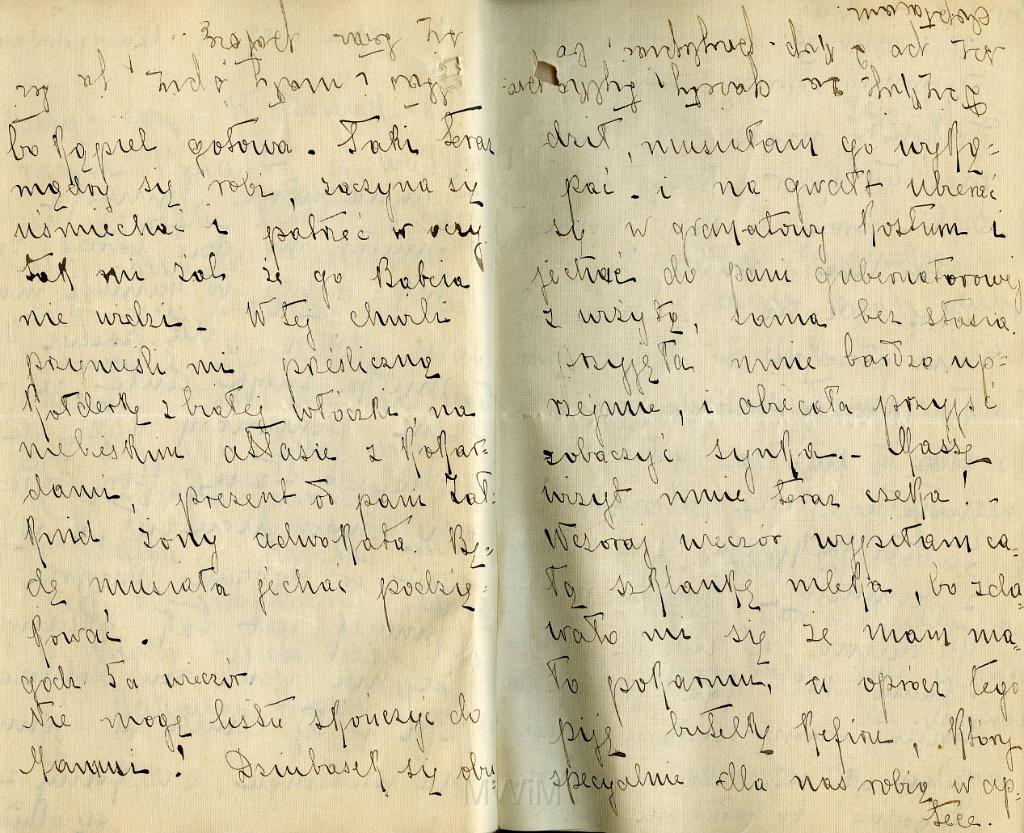 bo kąpiel gotowa. Taki teraz
mądry się robi, zaczyna się
uśmiechać i patrzeć w oczy
tak mi żal że go Babcia
nie widzi - W tej chwili
przynieśli mi prześliczną
kołderkę z białej włóczki, na
niebieskim atłasie z kokar-
dami, prezent od pani Zał-
kind żony adwokata. Bę-
dę musiała jechać podzię-
kować.
godz 5a wieczór
Nie mogę listu skończyć do
Mamusi! Dziubasek się obu-
dził, musiałam go wyką-
pać. i na gwałt ubierać
się w granatowy kostium i
jechać do pani gubernatorowej
z wizytą, sama bez Stasia.
przyjęła mnie bardzo up-
rzejmie, i obiecała przyjść
zobaczyć synka.- Massę
wizyt mnie teraz czeka! -
Wczoraj wieczór wypiłam ca-
łą szklankę mleka, bo zda-
wało mi się że mam ma-
ło pokarmu, a oprócz tego
piję butelkę kefiru, który
specyalnie dla nas robią w ap-
tece.
Dziękuję za gazety, tylko
po 2 kop.
dopłacam.
MWiM